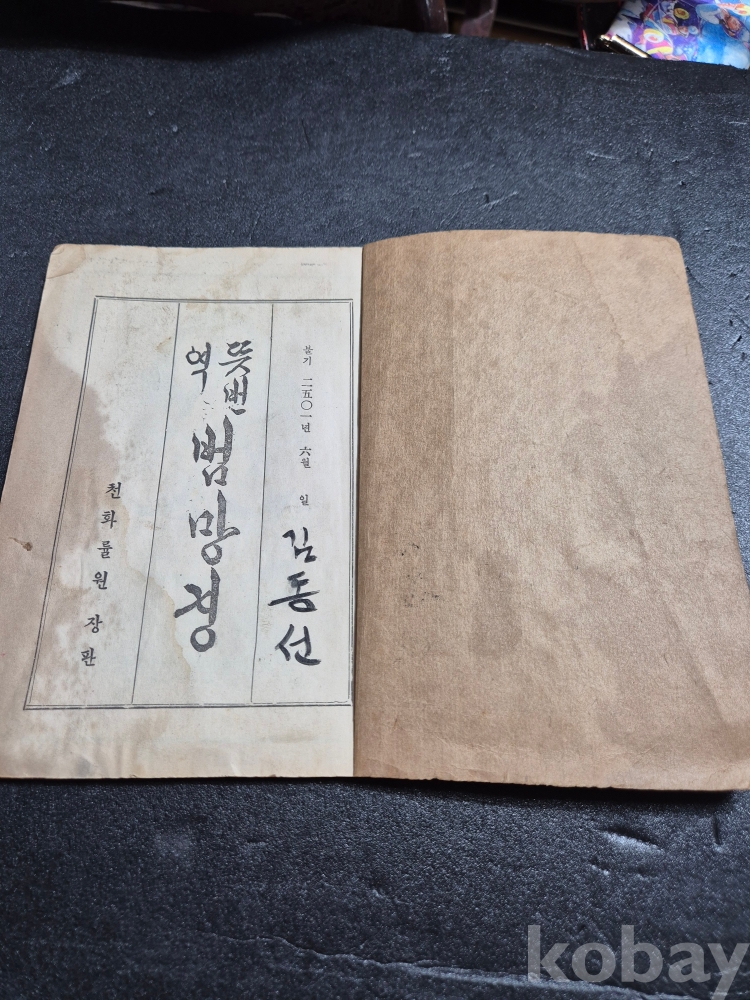 불기 二五〇一년 六월 일
김동선
뜻번역
범망경
천화률원 장판
kobay